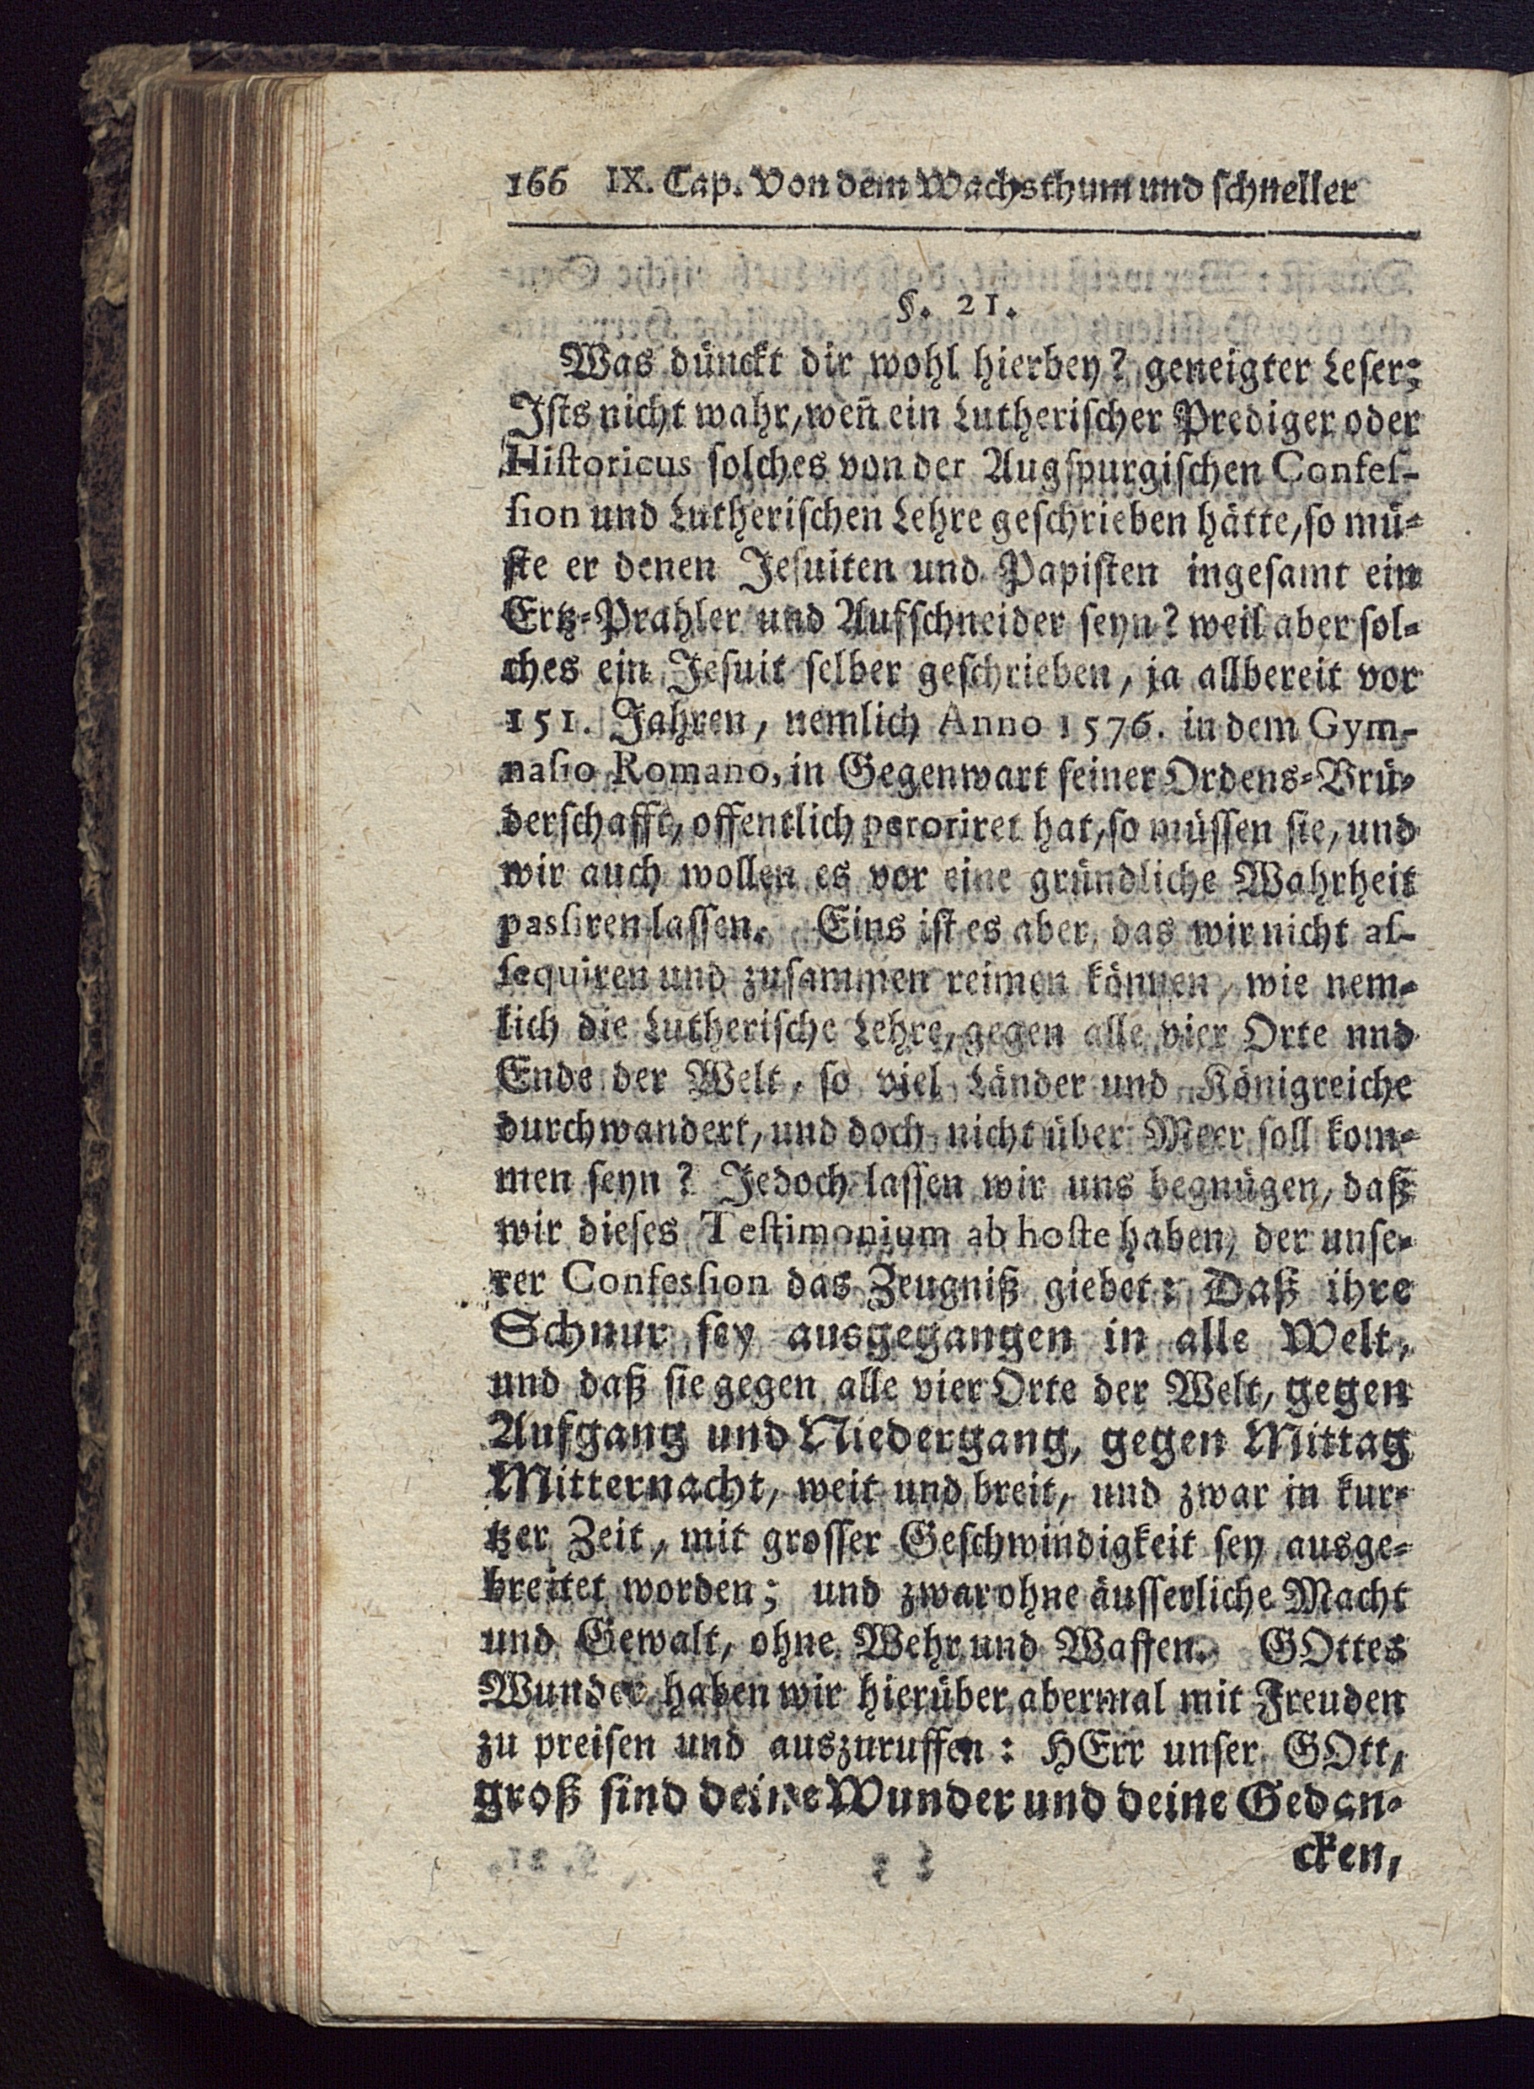 166 IX. Cap. Von dem Wachsthum und ſchneller
§. 21.
Was dünckt dir wohl hierbey? geneigter Leſer;
Iſts nicht wahr, weñ ein Lutheriſcher Prediger oder
Hiſtoricus ſolches von der Augſpurgiſchen Confeſ-
ſion und Lutheriſchen Lehre geſchrieben hätte, ſo mü-
ſte er denen Jeſuiten und Papiſten ingeſamt ein
Ertz-Prahler und Aufſchneider ſeyn? weil aber ſol-
ches ein Jeſuit ſelber geſchrieben, ja allbereit vor
151. Jahren, nemlich Anno 1576. in dem Gym-
naſio Romano, in Gegenwart ſeiner Ordens-Brü-
derſchafft, offentlich peroriret hat, ſo müſſen ſie, und
wir auch wollen es vor eine gründliche Wahrheit
paſſiren laſſen. Eins iſt es aber, das wir nicht aſ-
ſequiren und zuſammen reimen können, wie nem-
lich die Lutheriſche Lehre, gegen alle vier Orte nnd
Ende der Welt, ſo viel Länder und Königreiche
durchwandert, und doch nicht über Meer ſoll kom-
men ſeyn? Jedoch laſſen wir uns begnügen, daß
wir dieſes Teſtimonium ab hoſte haben, der unſe-
rer Confeſſion das Zeugniß giebet: Daß ihre
Schnur ſey ausgegangen in alle Welt,
und daß ſie gegen alle vier Orte der Welt, gegen
Aufgang und Niedergang, gegen Mittag
Mitternacht, weit und breit, und zwar in kur-
tzer Zeit, mit groſſer Geſchwindigkeit ſey ausge-
breitet worden; und zwar ohne äuſſerliche Macht
und Gewalt, ohne Wehr und Waffen. GOttes
Wunder haben wir hierüber abermal mit Freuden
zu preiſen und auszuruffen: HErr unſer GOtt,
groß ſind deine Wunder und deine Gedan-
cken,